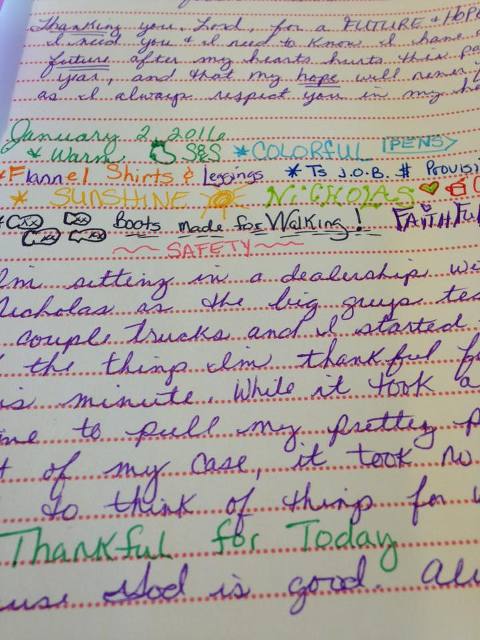 Thanking you, Lord, for a FUTURE & HOPE
I need you & I need to know I have a
future after my hearts hurts this pa
year, and that my hope will never
as I always respect you in my he
January 2, 2016
* Warm S&S *COLORFUL PENS
*Flannel Shirts & Leggings *T's J.O.B. $ Provisi
* SUNSHINE NiCHOLAS
Boots made for Walking! FAITHFul
SAFETY
I'm sitting in a dealership wi
Nicholas as the big guys tes
couple trucks and I started
the things I'm thankful fo
is minute. While it took a
me to pull my pretty p
t of my case, it took no
to think of things for w
Thankful for Today
use God is good. All